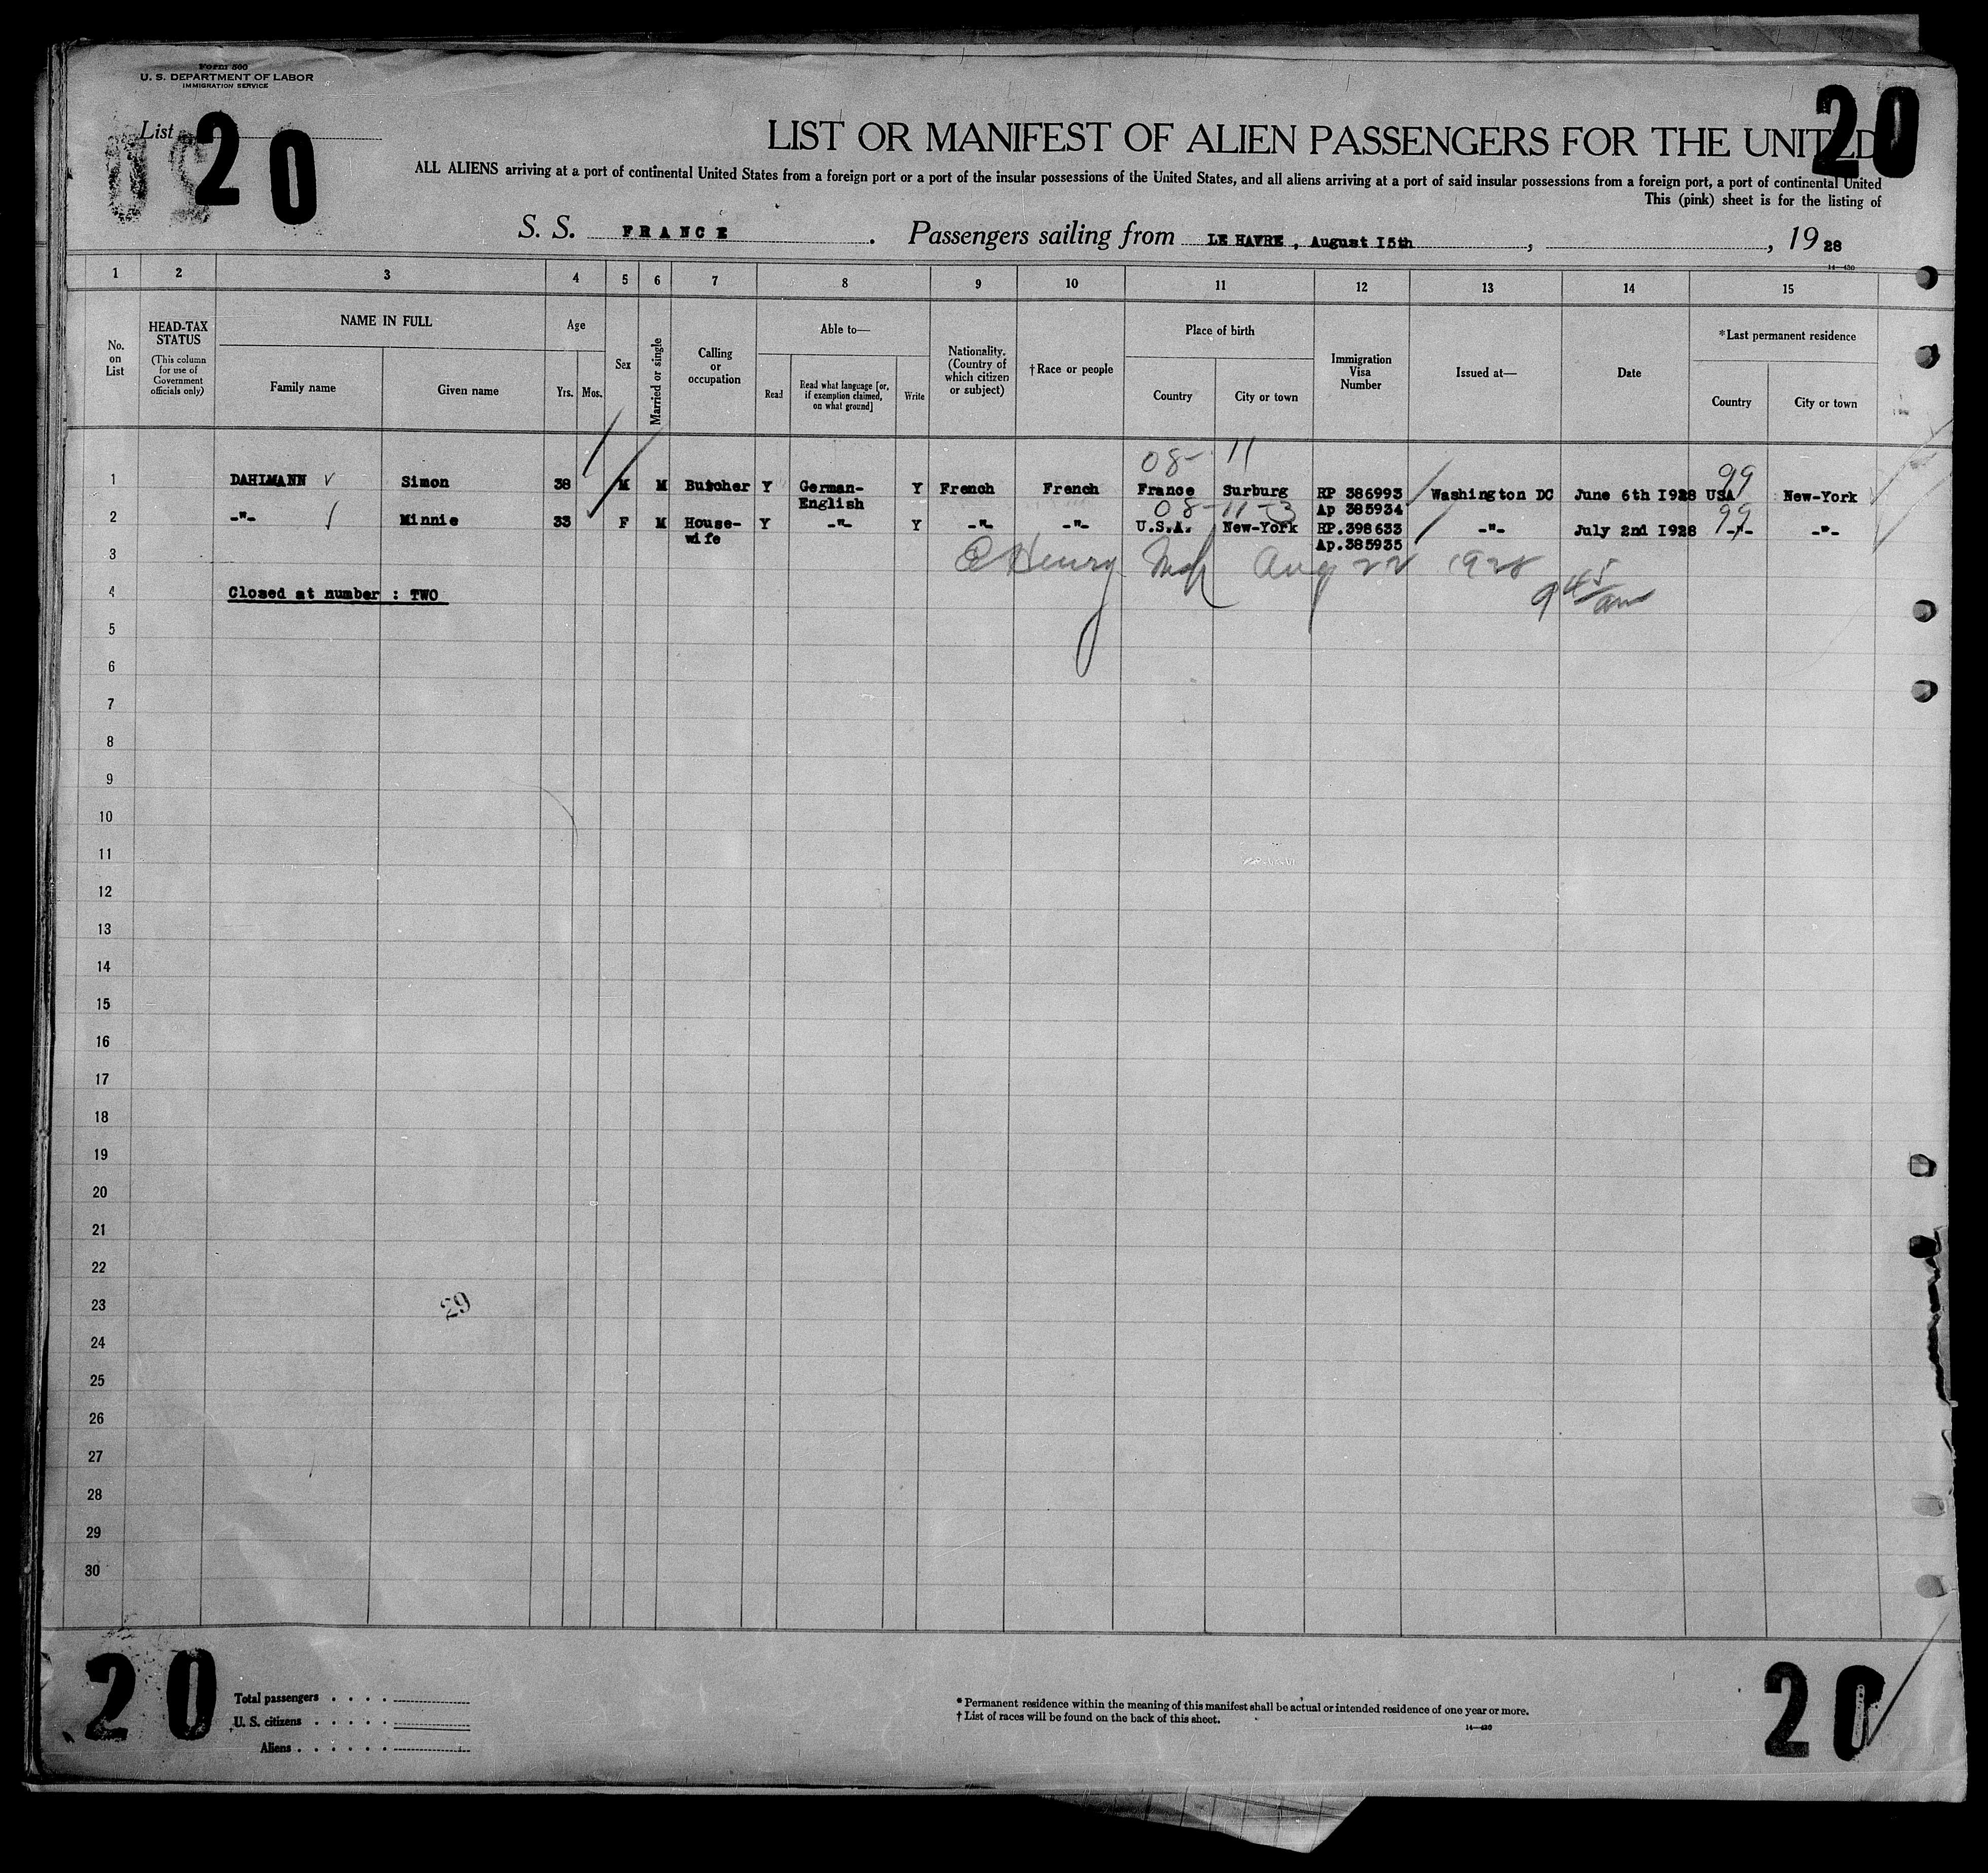 Form 500
U. S. DEPARTMENT OF LABOR
IMMIGRATION SERVICE
List 20
20
LIST OR MANIFEST OF ALIEN PASSENGERS FOR THE UNITED
ALL ALIENS arriving at a port of continental United States from a foreign port or a port of the insular possessions of the United States, and all aliens arriving at a port of said insular possessions from a foreign port, a port of continental United
This (pink) sheet is for the listing of
S. S. FRANCE. Passengers sailing from LE HAVRE, August I5th, , 1928
14—430
1 2 3 4 5 6 7 8 9 10 11 12 13 14 15
No. on List
HEAD-TAX STATUS
(This column for use of Government officials only)
NAME IN FULL
Family name
Given name
Age
Yrs. Mos.
Sex
Married or single
Calling or occupation
Able to—
Read
Read what language [or, if exemption claimed, on what ground]
Write
Nationality. (Country of which citizen or subject)
†Race or people
Place of birth
Country
City or town
Immigration Visa Number
Issued at—
Date
*Last permanent residence
Country
City or town
08- 11 99
1 DAHLMANN Simon 38 M M Butcher Y German- Y French French France Surburg RP 386993 Washington DC June 6th I928 USA New-York
English Ap 385934
08-11-3 99
2 -"- Minnie 33 F M House- Y -"- Y -"- -"- U.S.A. New-York RP.398633 -"- July 2nd I928 -"- -"-
wife Ap.385935
3 Henry Aug 22 1928
9 45/am
4 Closed at number : TWO
5
6
7
8
9
10
11
12
13
14
15
16
17
18
19
20
21
22
23 29
24
25
26
27
28
29
30
20
20
Total passengers . . . .
U. S. citizens . . . . .
Aliens . . . . . .
* Permanent residence within the meaning of this manifest shall be actual or intended residence of one year or more.
† List of races will be found on the back of this sheet.
14—430